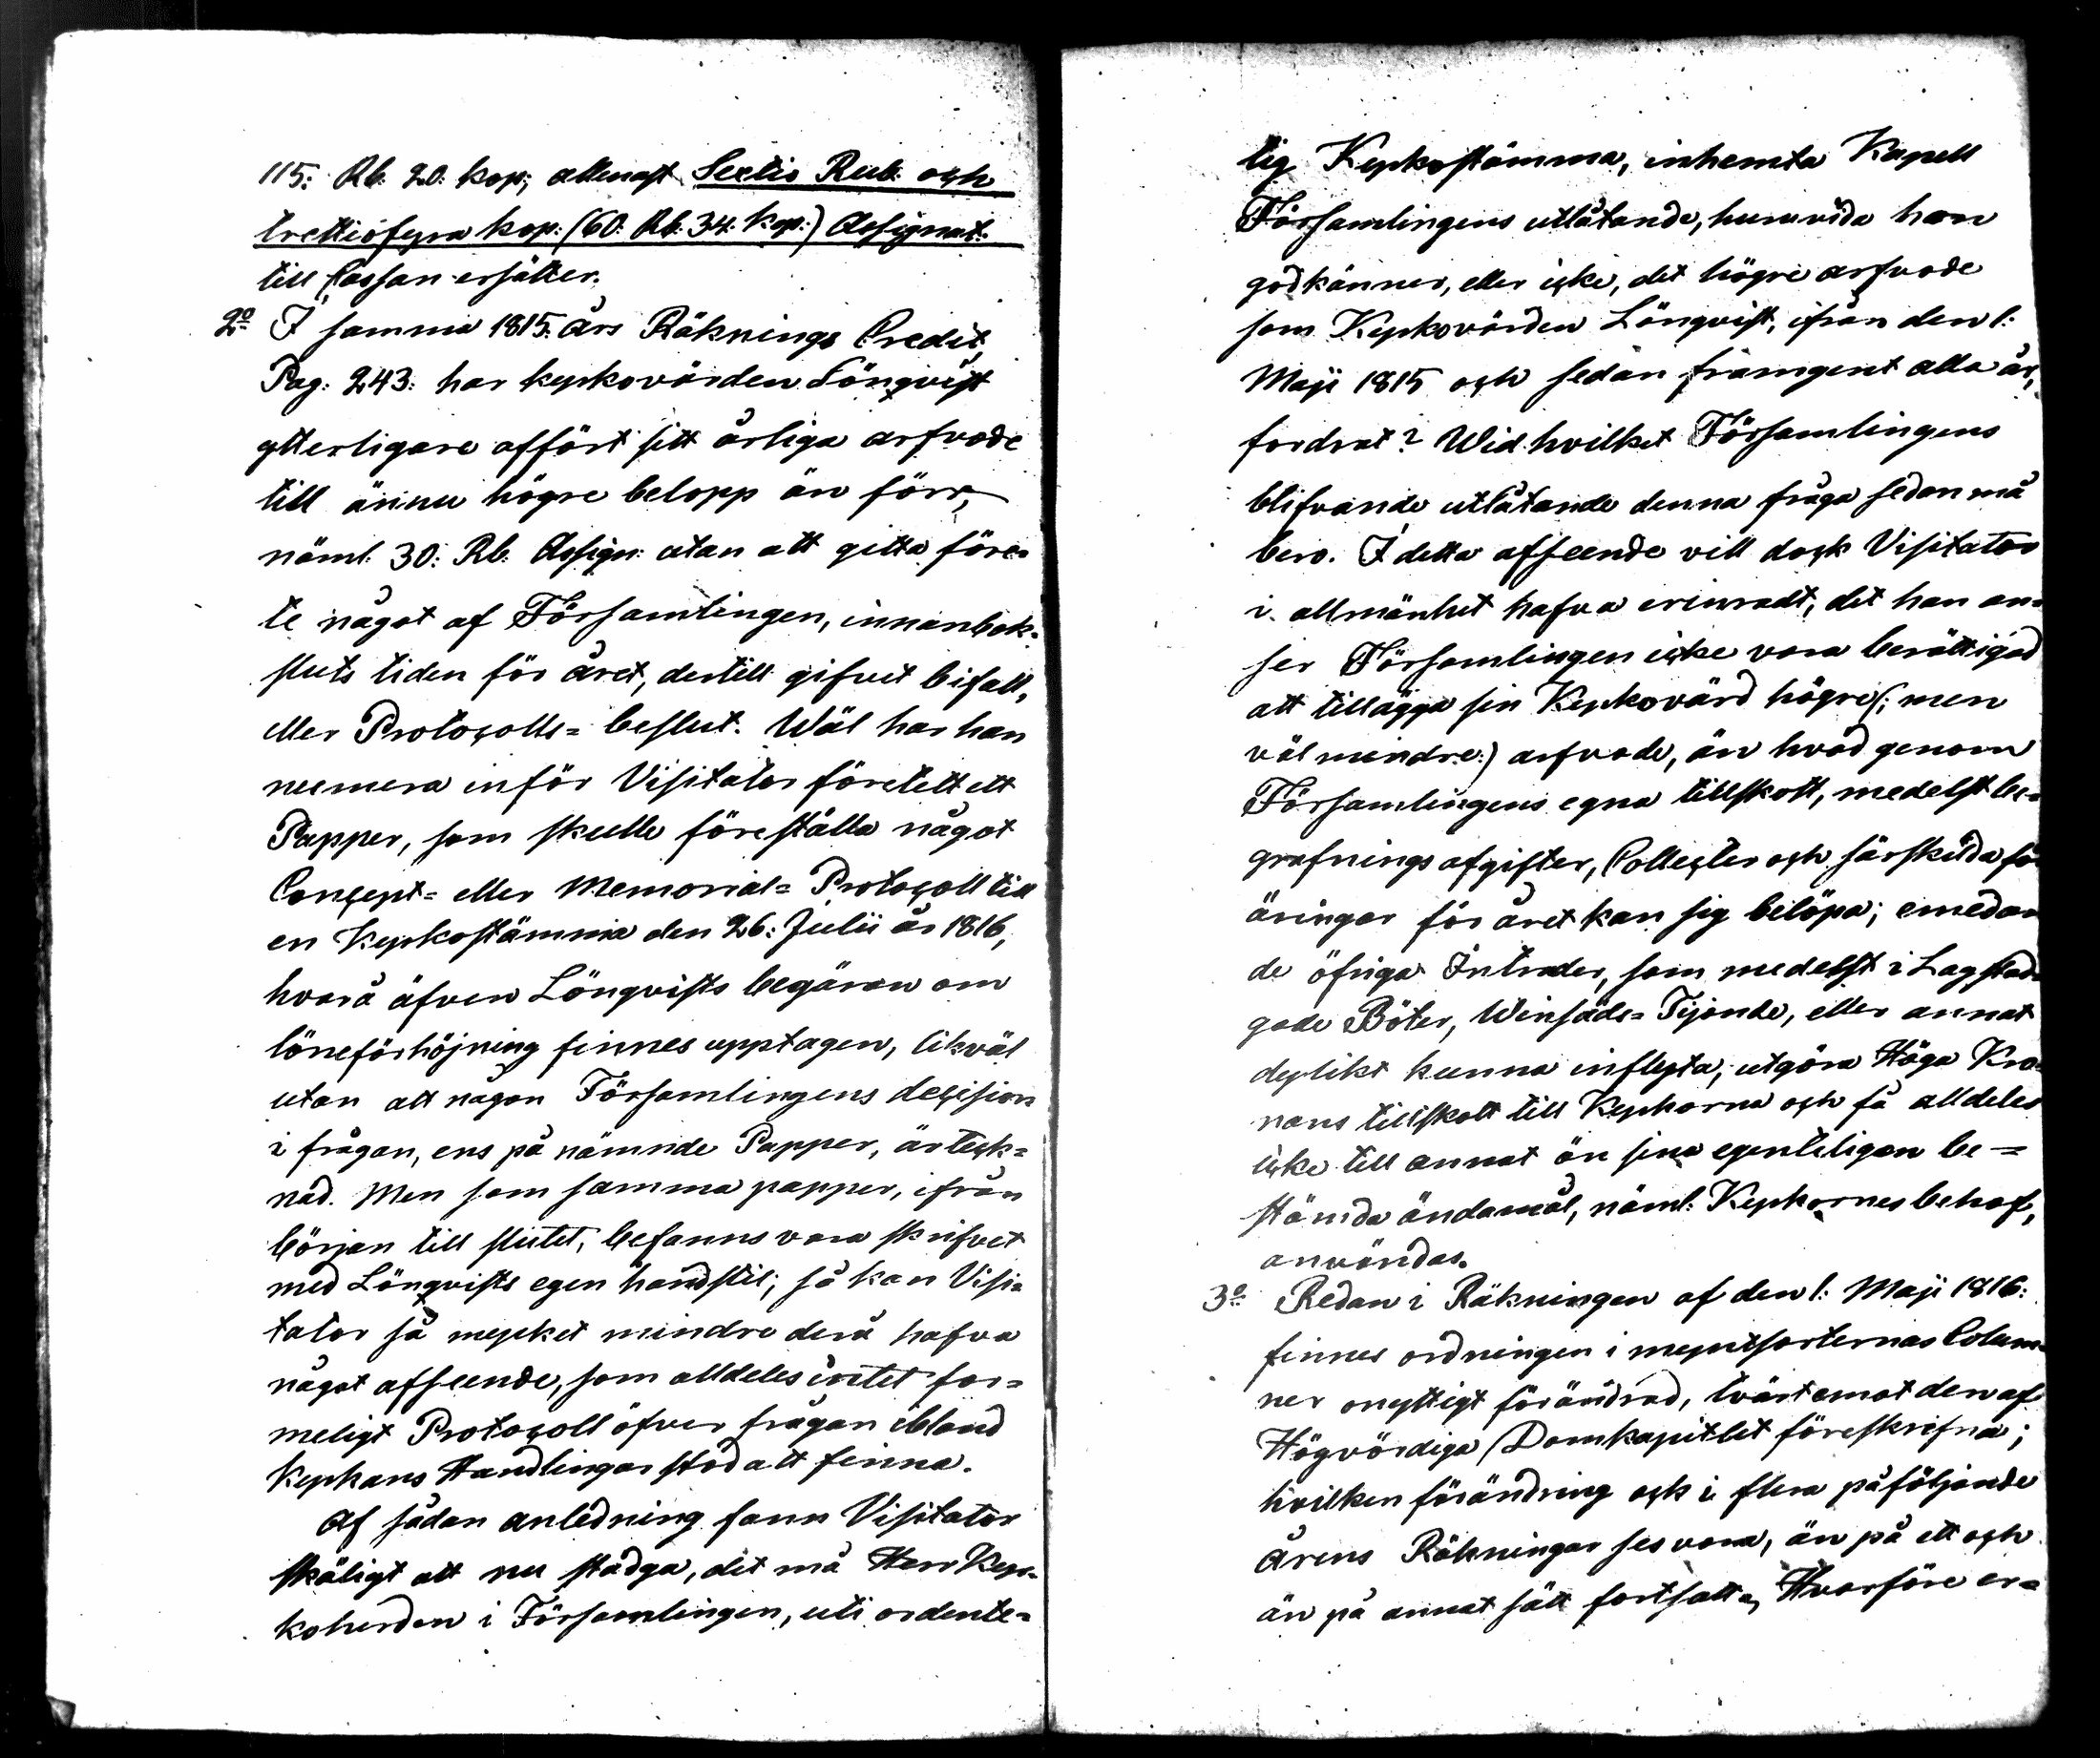 115: Rb: 20: kop; allenast Sextio Rub. och
trettiofyra kop: (60: Rb: 34: kop:) Assignat:
till Cassan ersätter.
2o I samma 1815: års Räknings Credit
Pag: 243: har kyrkovärden Lönqvist
ytterligare affört sitt årliga arfvode
till ännu högre belopp än förr,
näml: 30: Rb: Assign: utan att gitta före-
te något af Församlingen, innanbok-
sluts tiden för året, dertill gifvit bifall,
eller Protocolls= beslut. Wäl har han
numera inför Visitator företett ett
Papper, som skulle föreställa något
Concept= eller Memorial= Protocoll till
en Kyrkostämma den 26: Julii år 1816,
hvarå äfven Lönqvists begäran om
löneförhöjning finnes upptagen, likväl
utan att någon Församlingens decision
i frågan, ens på nämnde Papper, är teck=
nad. Men som samma papper, ifrån
början till slutet, befanns vara skrifvet
med Lönqvists egen handstil; så kan Visi=
tator så mycket mindre derå hafva
något afseende, som alldeles intet for=
meligt Protocoll öfver frågan ibland
Kyrkans Handlingar stod att finna.
Af sådan anledning fann Visitator
skäligt att nu stadga, det må Herr Kyr-
koherden i Församlingen, uti ordente=
lig Kyrkostämma, inhemta Kapell
Församlingens utlåtande, huruvida hon
godkänner, eller icke, det högre arfvode
som Kyrkovärden Lönqvist, ifrån den 1:
Maji 1815 och sedan framgent alla år,
fordrat? Wid hvilket Församlingens
blifvande utlåtande denna fråga sedan må
bero. I detta afseende vill dock Visitator
i allmänhet hafva erinradt, det han an=
ser Församlingen icke vara berättigad
att tillägga sin Kyrkovärd högre (: men
väl mindre:) arfvode, än hvad genom
Församlingens egna tillskott, medelst be=
grafnings afgifter, Collecter och särskilda för
äringar för året kan sig belöpa; emedan
de öfriga Intrader, som medelst i Lag stad-
gade Böter, Winsäds= Tijonde, eller annat
dylikt kunna inflyta, utgöra Höga Kro=
nans tillskott till Kyrkorna och få alldeles
icke till annat än sina egenteligan be =
stämda ändamål, näml: Kyrkornes behof,
användas.
3o Redan i Räkningen af den 1: Maji 1816:
finnes ordningen i myntsorternas Colum-
ner onyttigt förändrad, tvärtemot den af
Högvördiga Domkapitlet föreskrifna;
hvilken förändring ock i flera påföljande
årens Räkningar ses vara, än på ett och
än på annat sätt fortsatt. Hvarföre er=